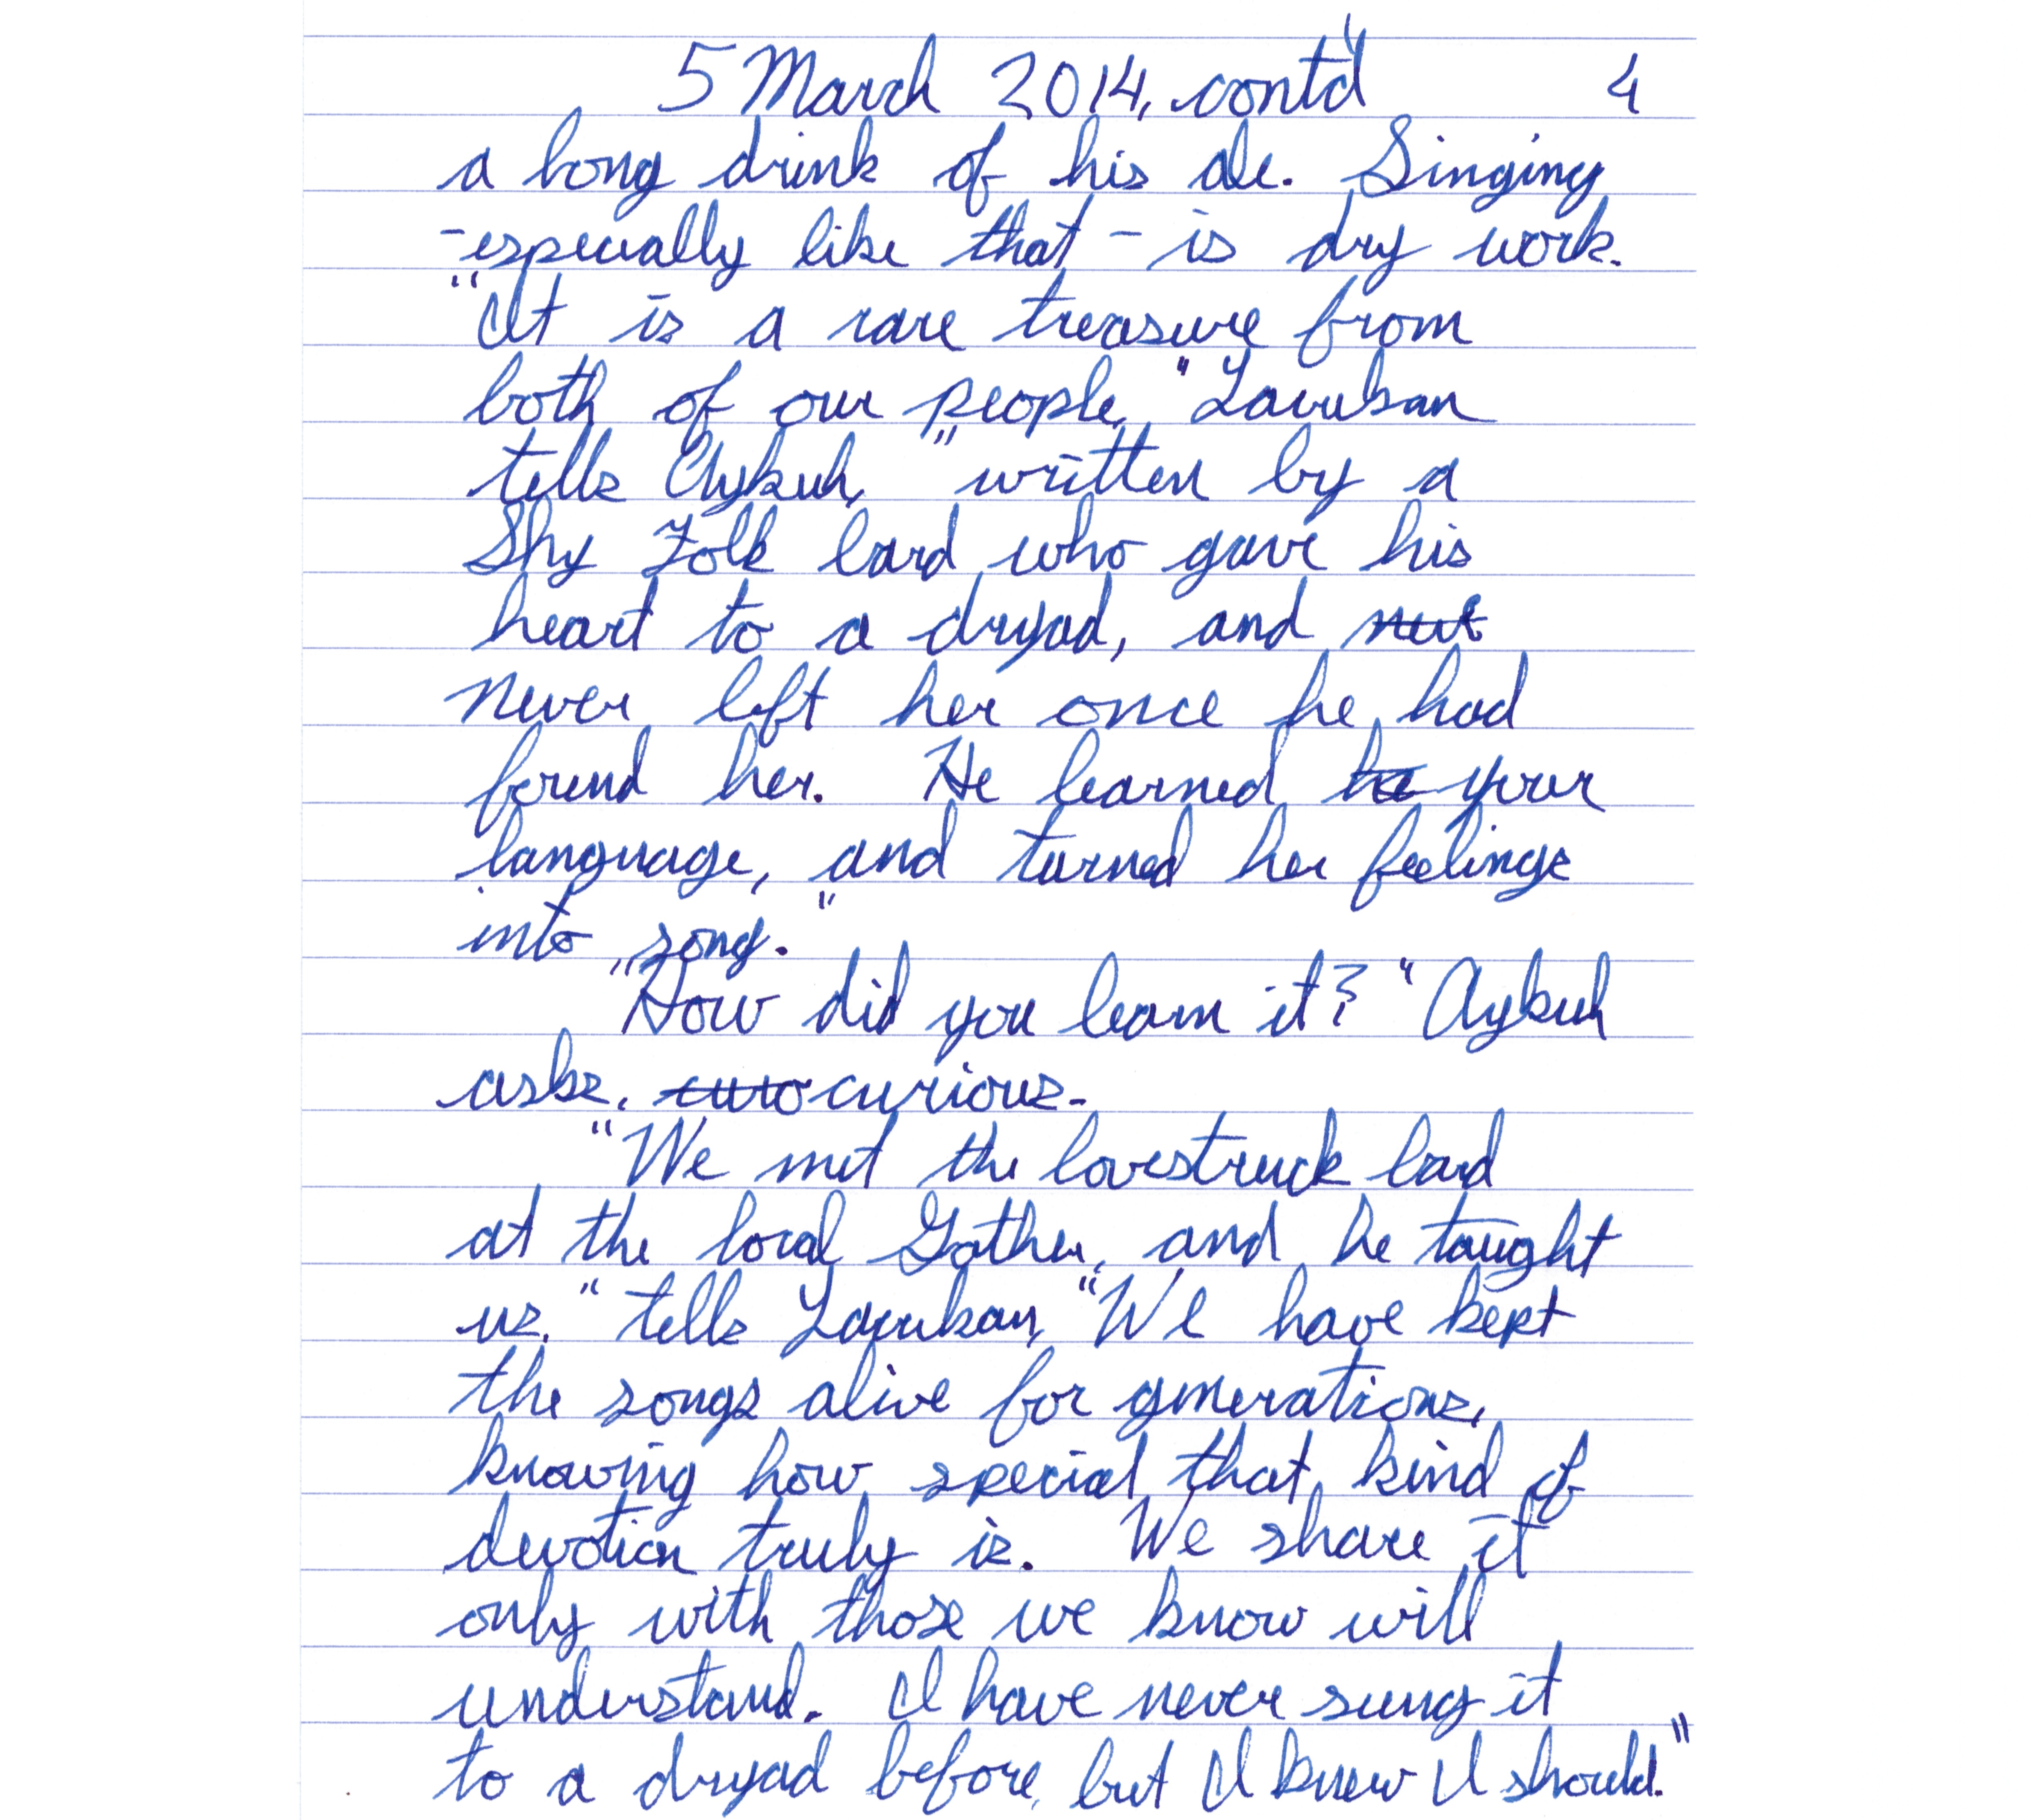 5 March 2014, cont'd 4
a long drink of his ale. Singing
- especially like that - is dry work.
"It is a rare treasure from
both of our people," Lavukan
tells Aykuh, "written by a
Shy Folk bard who gave his
heart to a dryad, and
never left her once he had
found her. He learned your
language, and turned her feelings
into song."
"How did you learn it?" Aykuh
asks, curious.
"We met the lovestruck bard
at the local Gather, and he taught
us," tells Lavukan, "We have kept
the songs alive for generations,
knowing how special that kind of
devotion truly is. We share it
only with those we know will
understand. I have never sung it
to a dryad before, but I knew I should."